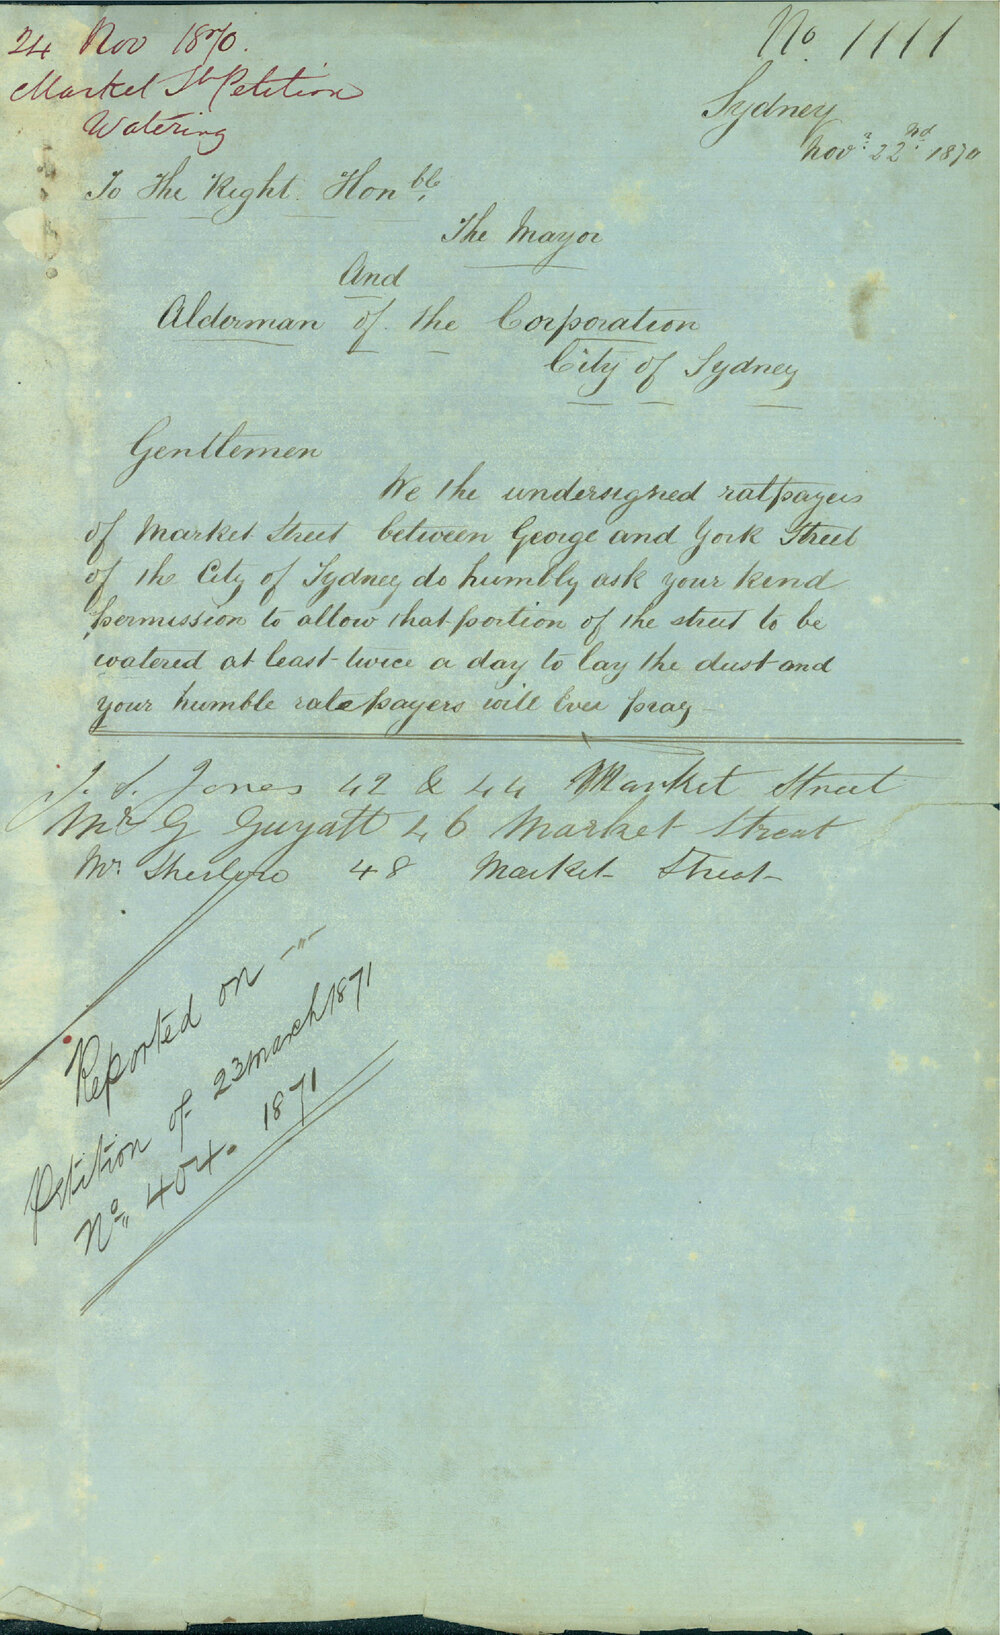 24 Nov 1870.
Market St Petition
Watering
No. 1111
Sydney
Nov. 22nd 1870
To The Right Honble.
The Mayor
And
Alderman of the Corporation
City of Sydney
Gentlemen
We the undersigned ratpayers
of Market Street between George and York Street
of the City of Sydney do humbly ask your kind
permission to allow that portion of the street to be
watered at least twice a day to lay the dust and
your humble ratepayers will Ever pray
J. S. Jones 42 & 44 Market Street
Mr G Guyatt 46 Market Street
Mr. 48 Market Street
Reported on
Petition of 23 March 1871
No. 404. 1871